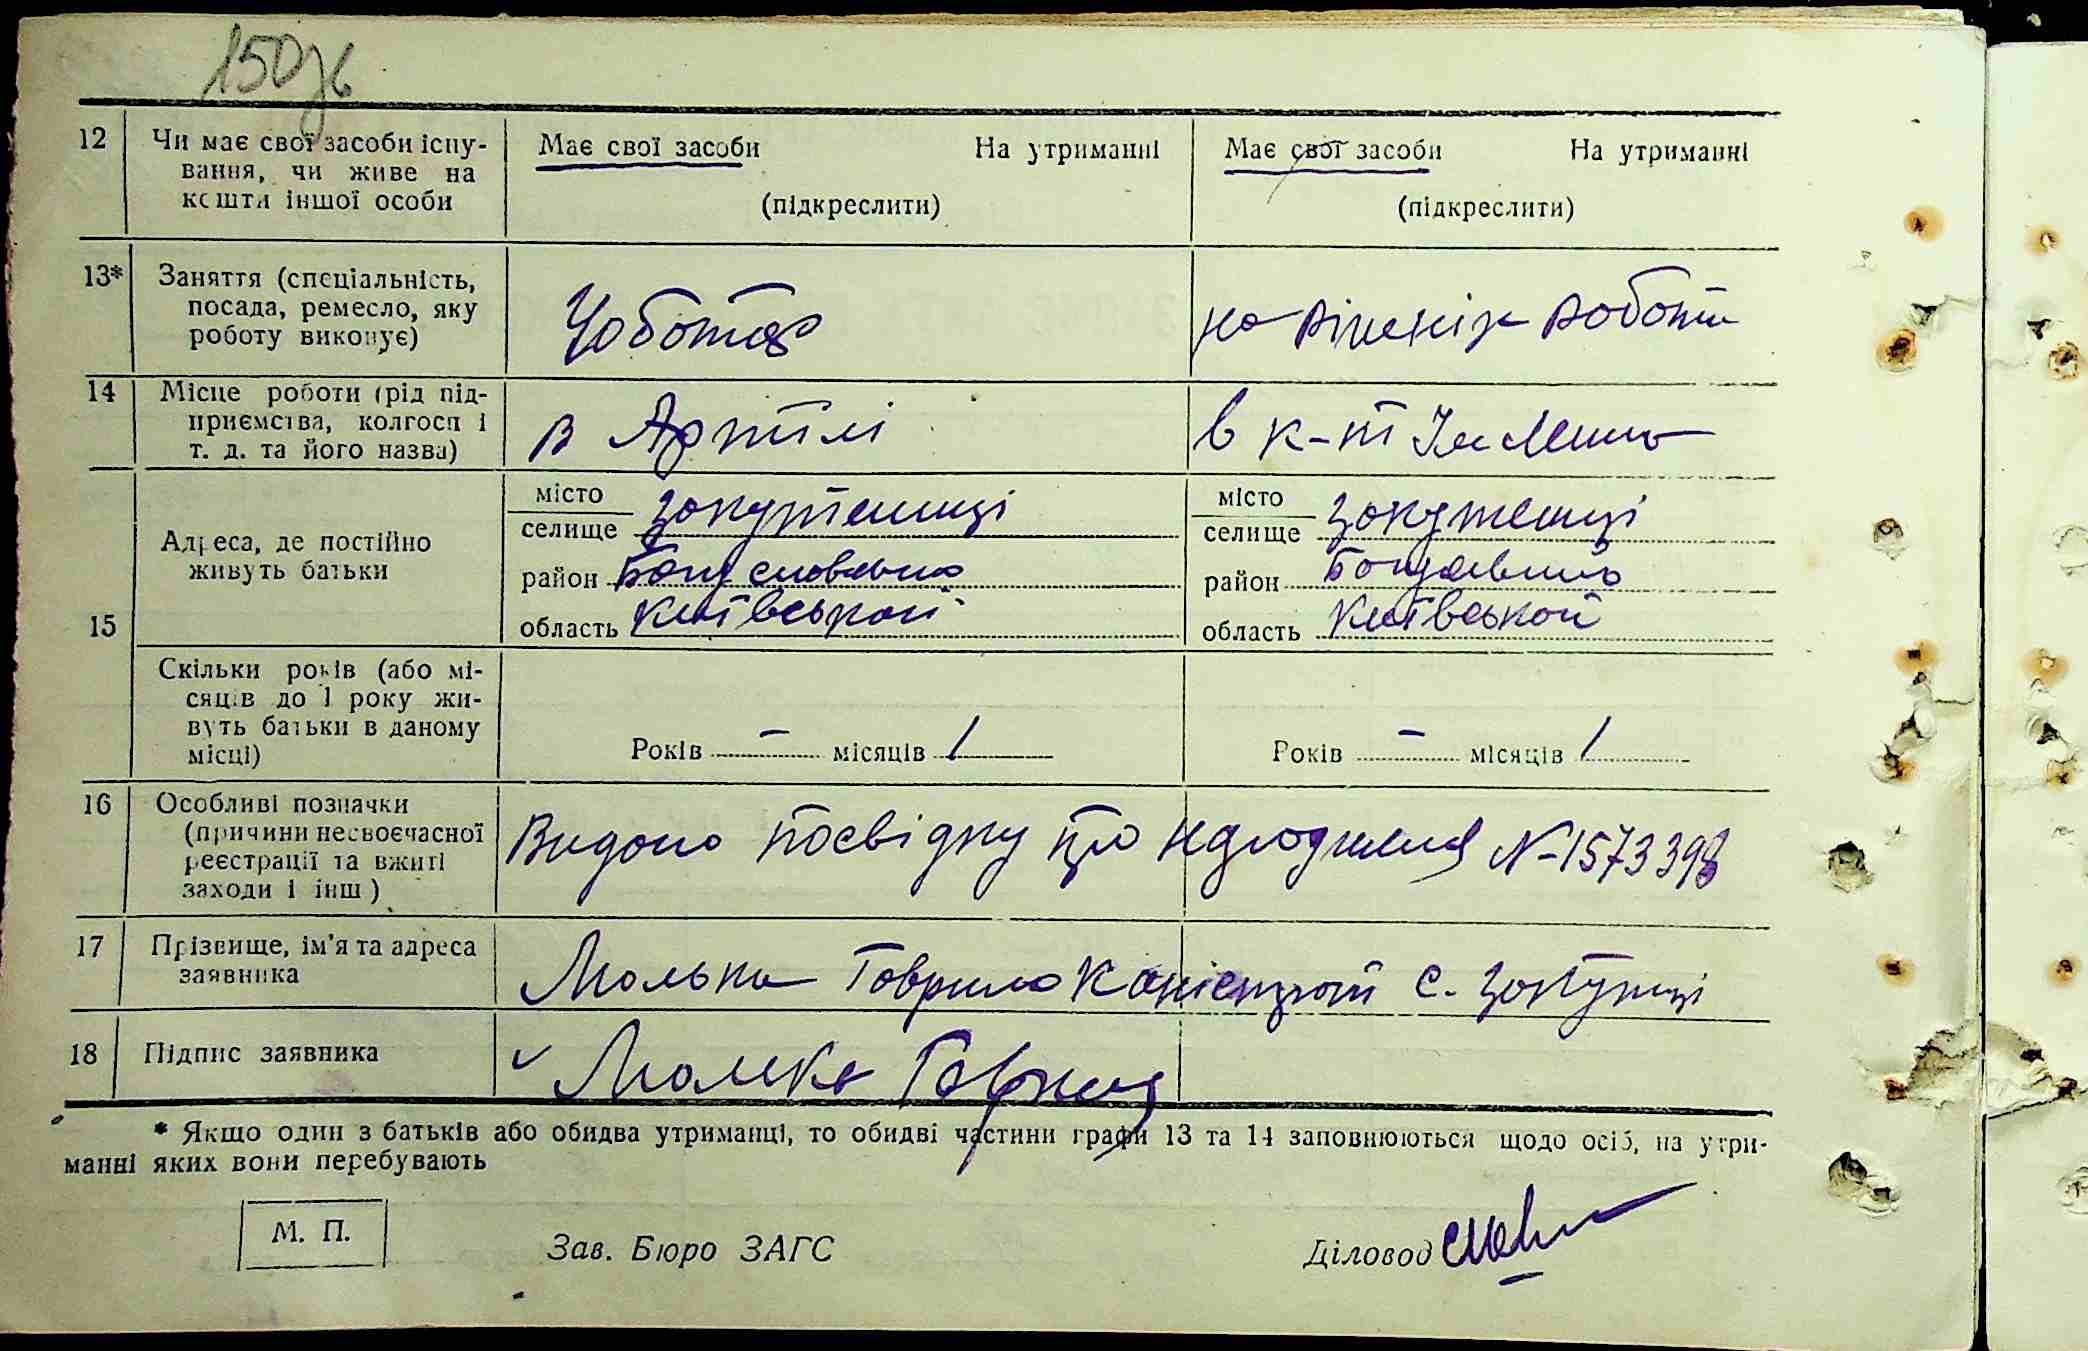 150зв
12 Чи має свої засоби існу-
вання, чи живе на
кошти іншої особи
Має свої засоби На утриманні
(підкреслити)
Має свої засоби На утриманні
(підкреслити)
13* Заняття (спеціальність,
посада, ремесло, яку
роботу виконує)
Чоботар
на різних роботи
14 Місце роботи (рід під-
приємства, колгосп і
т. д. та його назва)
в Артілі
в к-т Ім
15 Адреса, де постійно
живуть батьки
місто
селище Закутенці
район
область Київської
місто
селище Закутенці
район
область Київської
Скільки років (або мі-
сяців до 1 року жи-
вуть батьки в даному
місці)
Років – місяців 1
Років – місяців 1
16 Особливі позначки
(причини несвоєчасної
реєстрації та вжиті
заходи і інш)
Видано посвідку про народження №-1573398
17 Прізвище, ім'я та адреса
заявника
Гаврило с.
18 Підпис заявника
* Якщо один з батьків або обидва утриманці, то обидві частини графи 13 та 14 заповнюються щодо осіб, на утри-
манні яких вони перебувають
М. П.
Зав. Бюро ЗАГС
Діловод